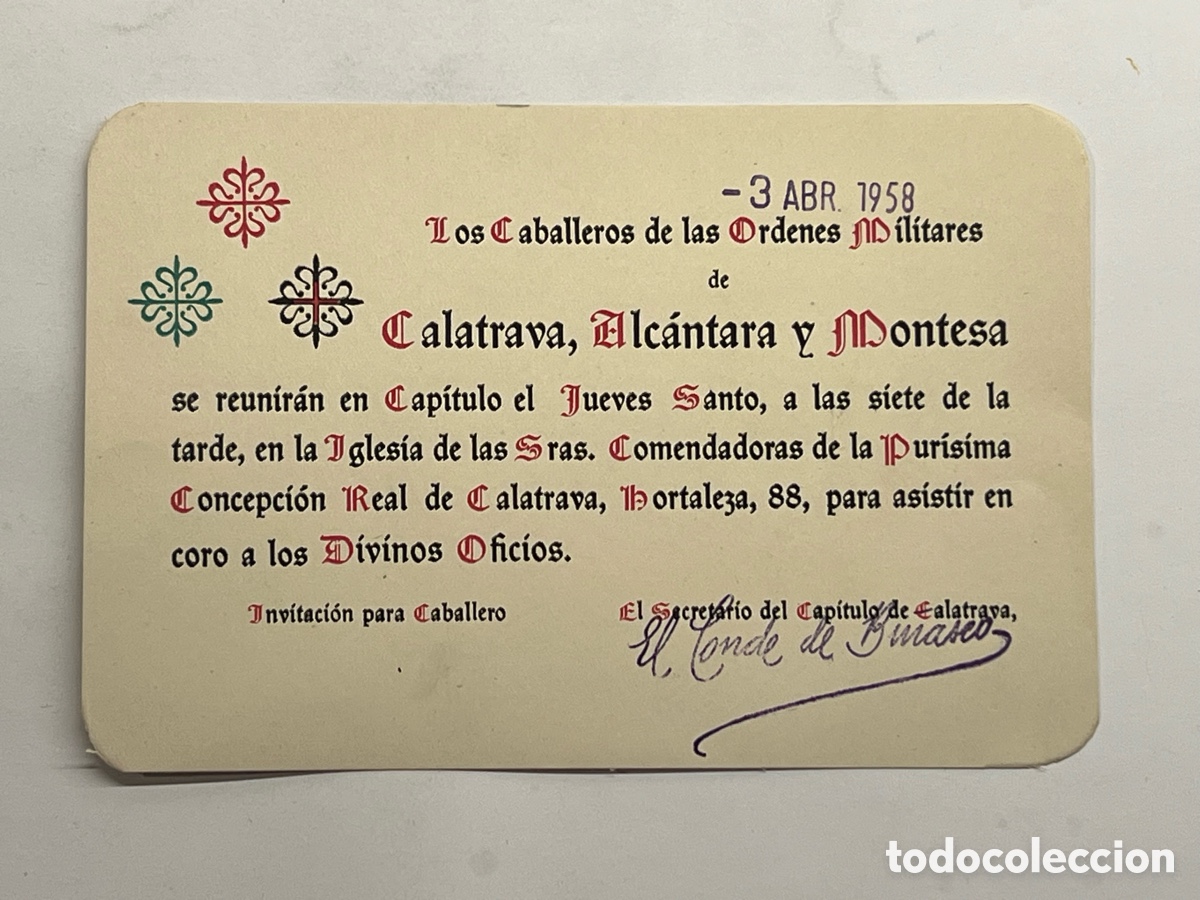 -3 ABR. 1958
Los Caballeros de las Ordenes Militares
de
Calatrava, Alcántara y Montesa
se reunirán en Capítulo el Jueves Santo, a las siete de la
tarde, en la Iglesia de las Sras. Comendadoras de la Purísima
Concepción Real de Calatrava, Hortaleza, 88, para asistir en
coro a los Divinos Oficios.
Invitación para Caballero
El Secretario del Capítulo de Calatrava,
El Conde de Binasco
todocoleccion